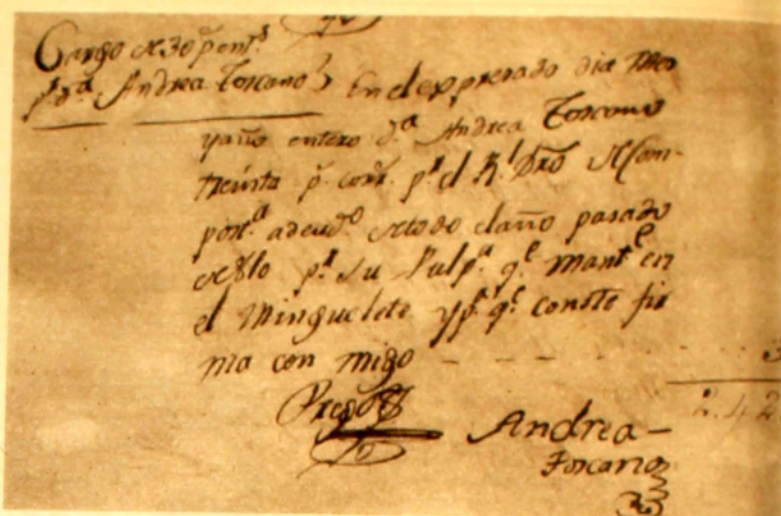 Cargo de 30 p ent.s
p.r D.a Andrea Toscano
En el expresado dia mes
y año entero D.a Andrea Toscano
treinta p. corr. p.r el R.l Dro de Com-
pos.n adeud.o de todo el año pasado
de 810 p.r su Pulp.a q.e mant.e en
el Minguelete y p.a q.e conste fir
ma con migo
2.42
Andrea
Toscano